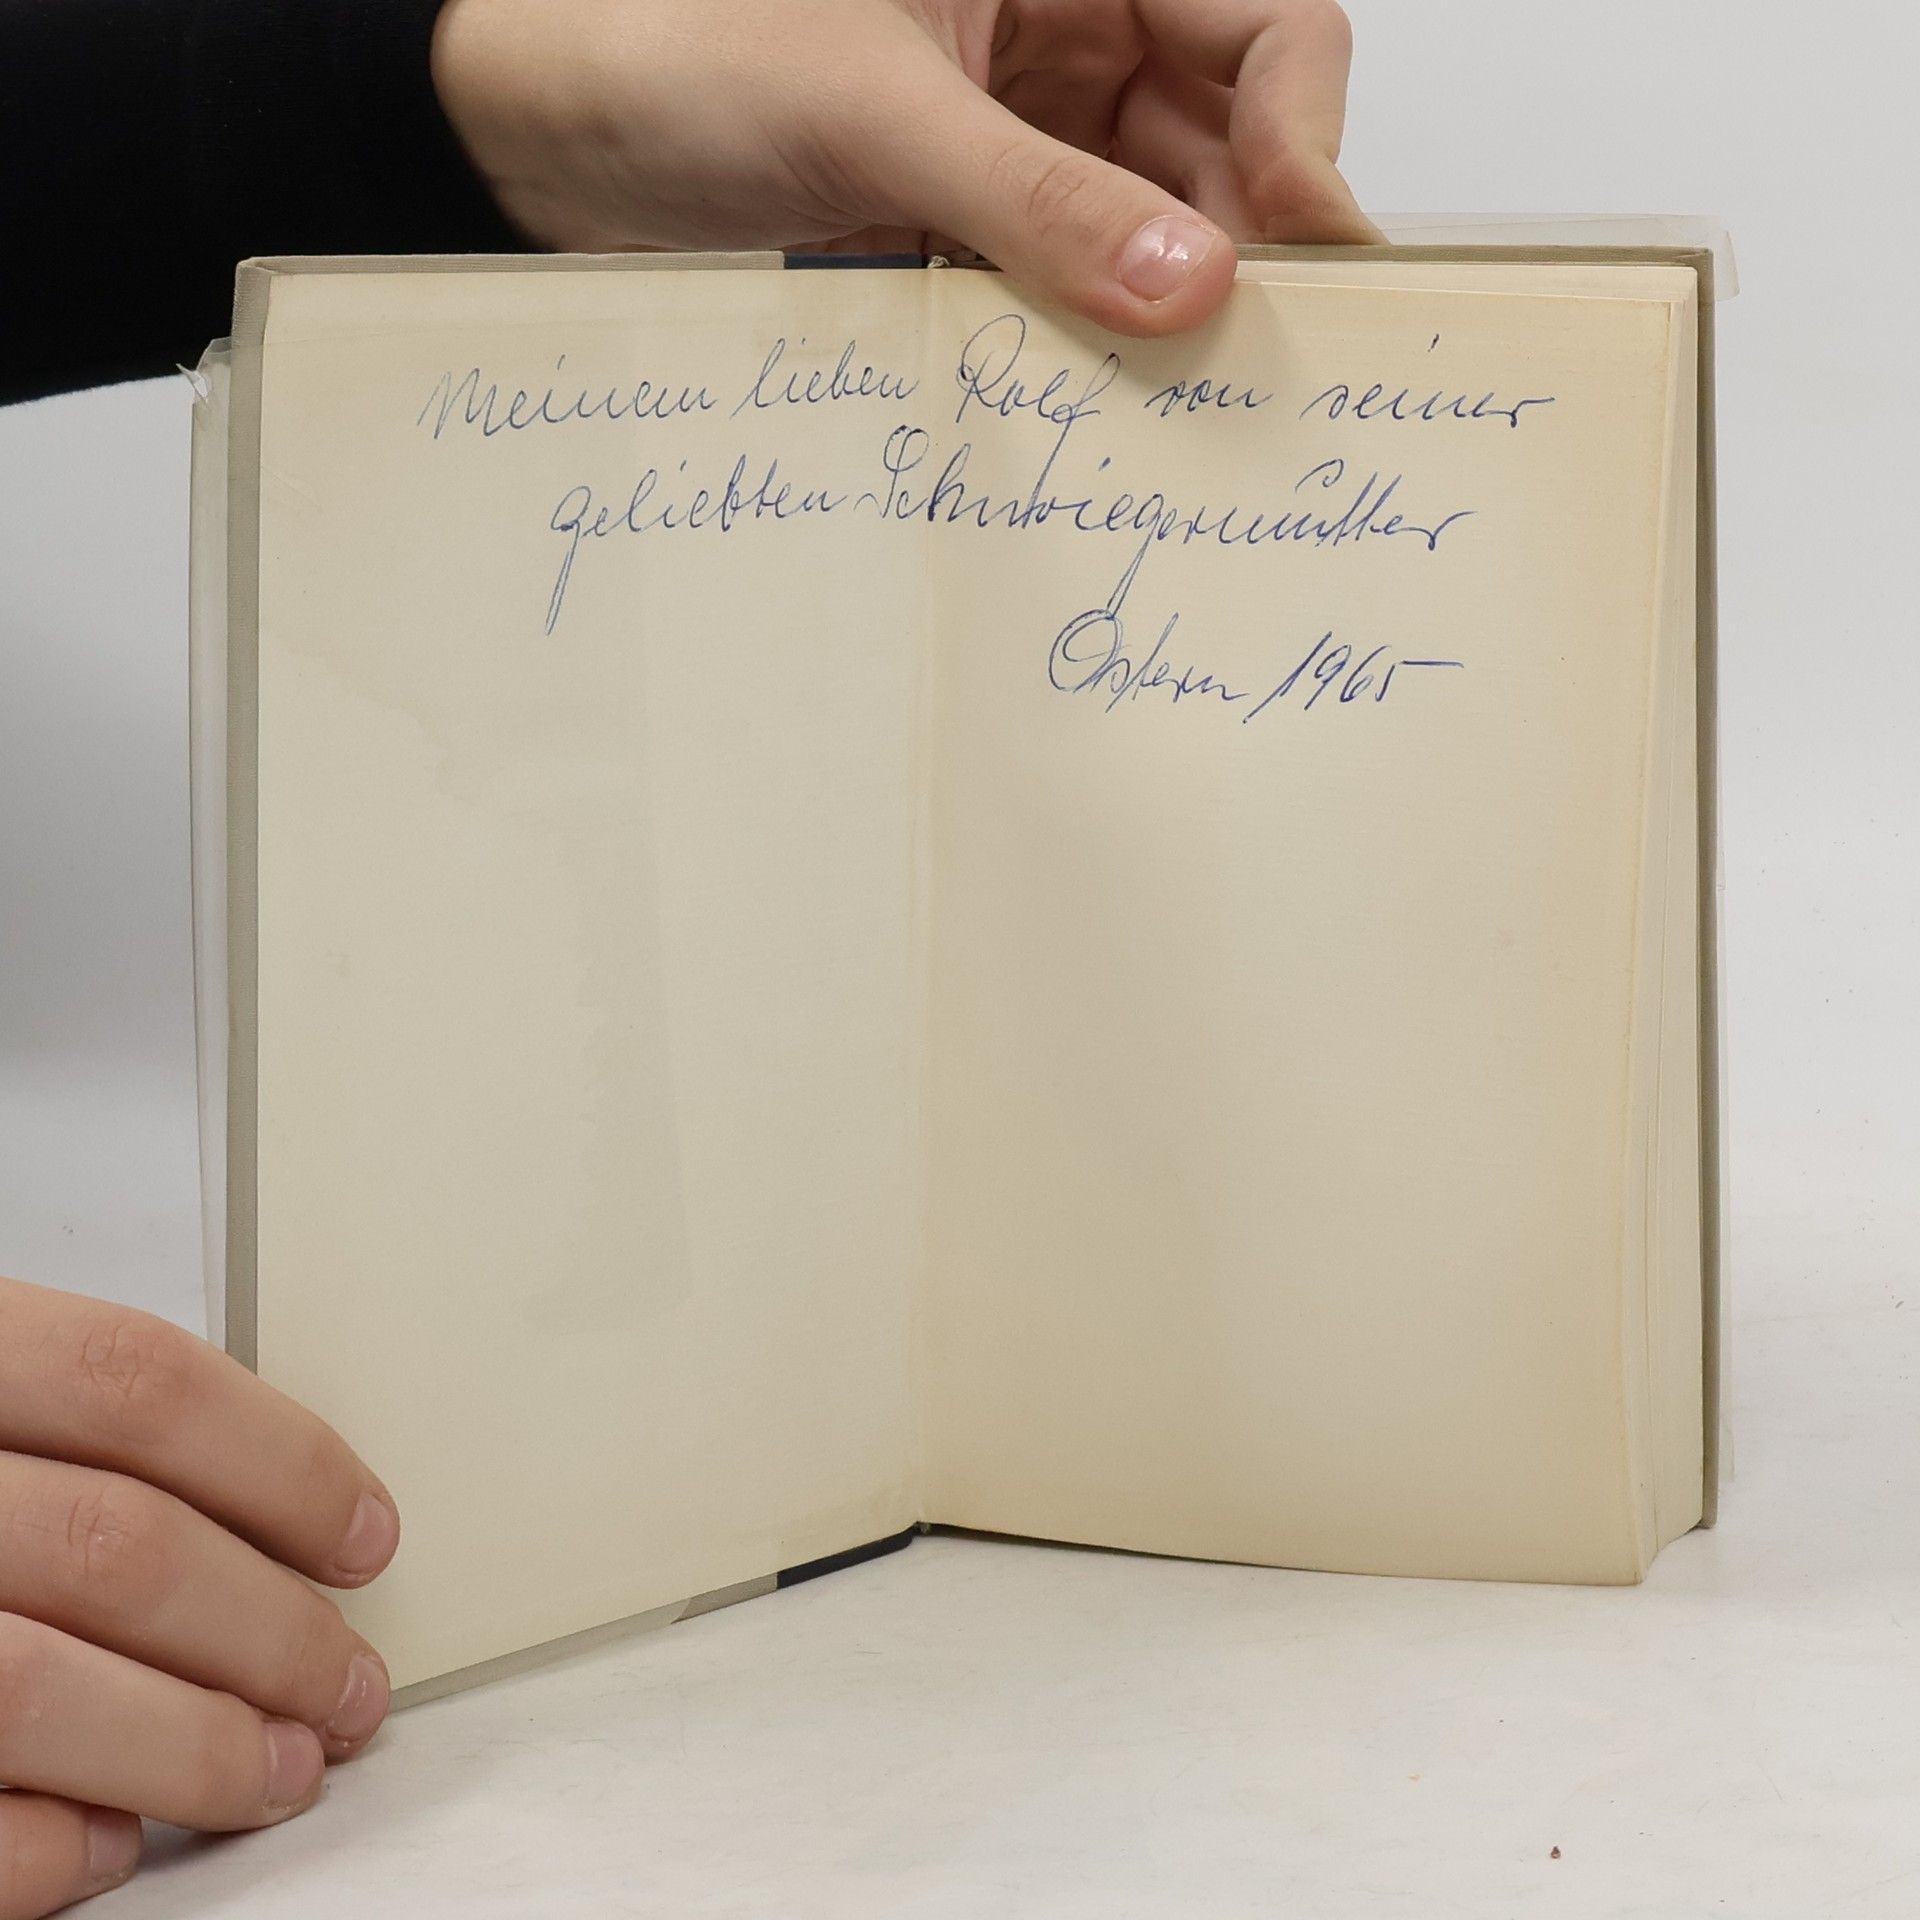 Meinem lieben Rolf von seiner
geliebten Schwiegermutter
Ostern 1965